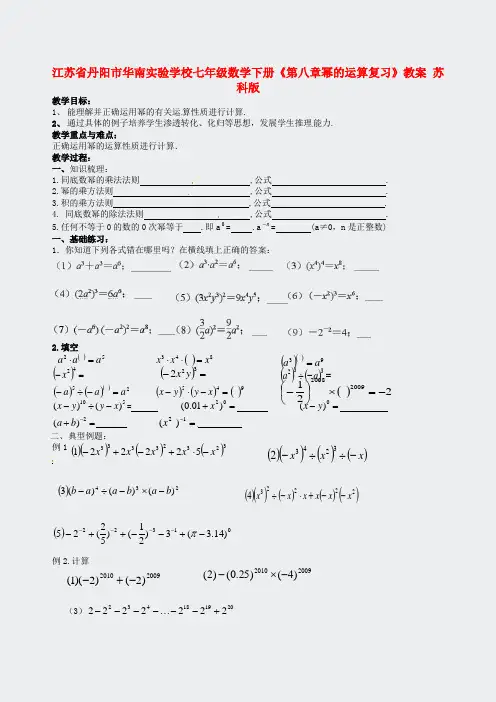 江苏省丹阳市华南实验学校七年级数学下册《第八章幂的运算复习》教案 苏
科版
教学目标:
1、 能理解并正确运用幂的有关运算性质进行计算.
2、 通过具体的例子培养学生渗透转化、化归等思想，发展学生推理能力.
教学重点与难点:
正确运用幂的运算性质进行计算.
教学过程:
一、知识梳理:
1.同底数幂的乘法法则 ,公式 .
2.幂的乘方法则 ,公式 .
3.积的乘方法则 ,公式 .
4. 同底数幂的除法法则 ,公式 .
5.任何不等于0的数的0次幂等于 .即a⁰= .a⁻ⁿ= (a≠0，n是正整数)
一、基础练习:
1. 你知道下列各式错在哪里吗？在横线填上正确的答案:
（1）a³＋a³＝a⁶；____ （2）a³·a²＝a⁶；____ （3）(x⁴)⁴＝x⁸；____
（4）(2a²)³＝6a⁶；____ （5）(3x²y³)²＝9x⁴y⁵；____ （6）(－x²)³＝x⁶；____
（7）(－a⁶)(－a²)²＝a⁸；____ （8）(3/2 a)²＝9/2 a²；____ （9）－2⁻²＝4；____
2.填空
a²·a^( )=a⁵ x³·x⁴·( )=x⁸ (a³)^( )=a⁹
(-x⁵)⁴= (-2x²y)³= (a²)³÷(-a)³=
(-a)⁵÷(-a)^( )=a² (x-y)⁵·(y-x)⁴=( )⁹ (-1/2)²⁰⁰⁸×( )²⁰⁰⁹=-2
(x-y)¹⁰÷(y-x)⁵= (0.01+x²)⁰= (x-y)⁰=
(a+b)⁻²= (x²)⁻¹=
二、典型例题:
(2)(-x³)⁴÷(x²)³÷(-x)
(3)(b-a)⁴÷(a-b)³×(a-b)²
(5)-2⁻²+(2/5)⁻²+(-1/2)⁻³-3⁻¹+(π-3.14)⁰
例2.计算
(1)(-2)²⁰¹⁰+(-2)²⁰⁰⁹ (2)(-0.25)²⁰¹⁰×(-4)²⁰⁰⁹
（3）2-2²-2³-2⁴-…-2¹⁸-2¹⁹+2²⁰